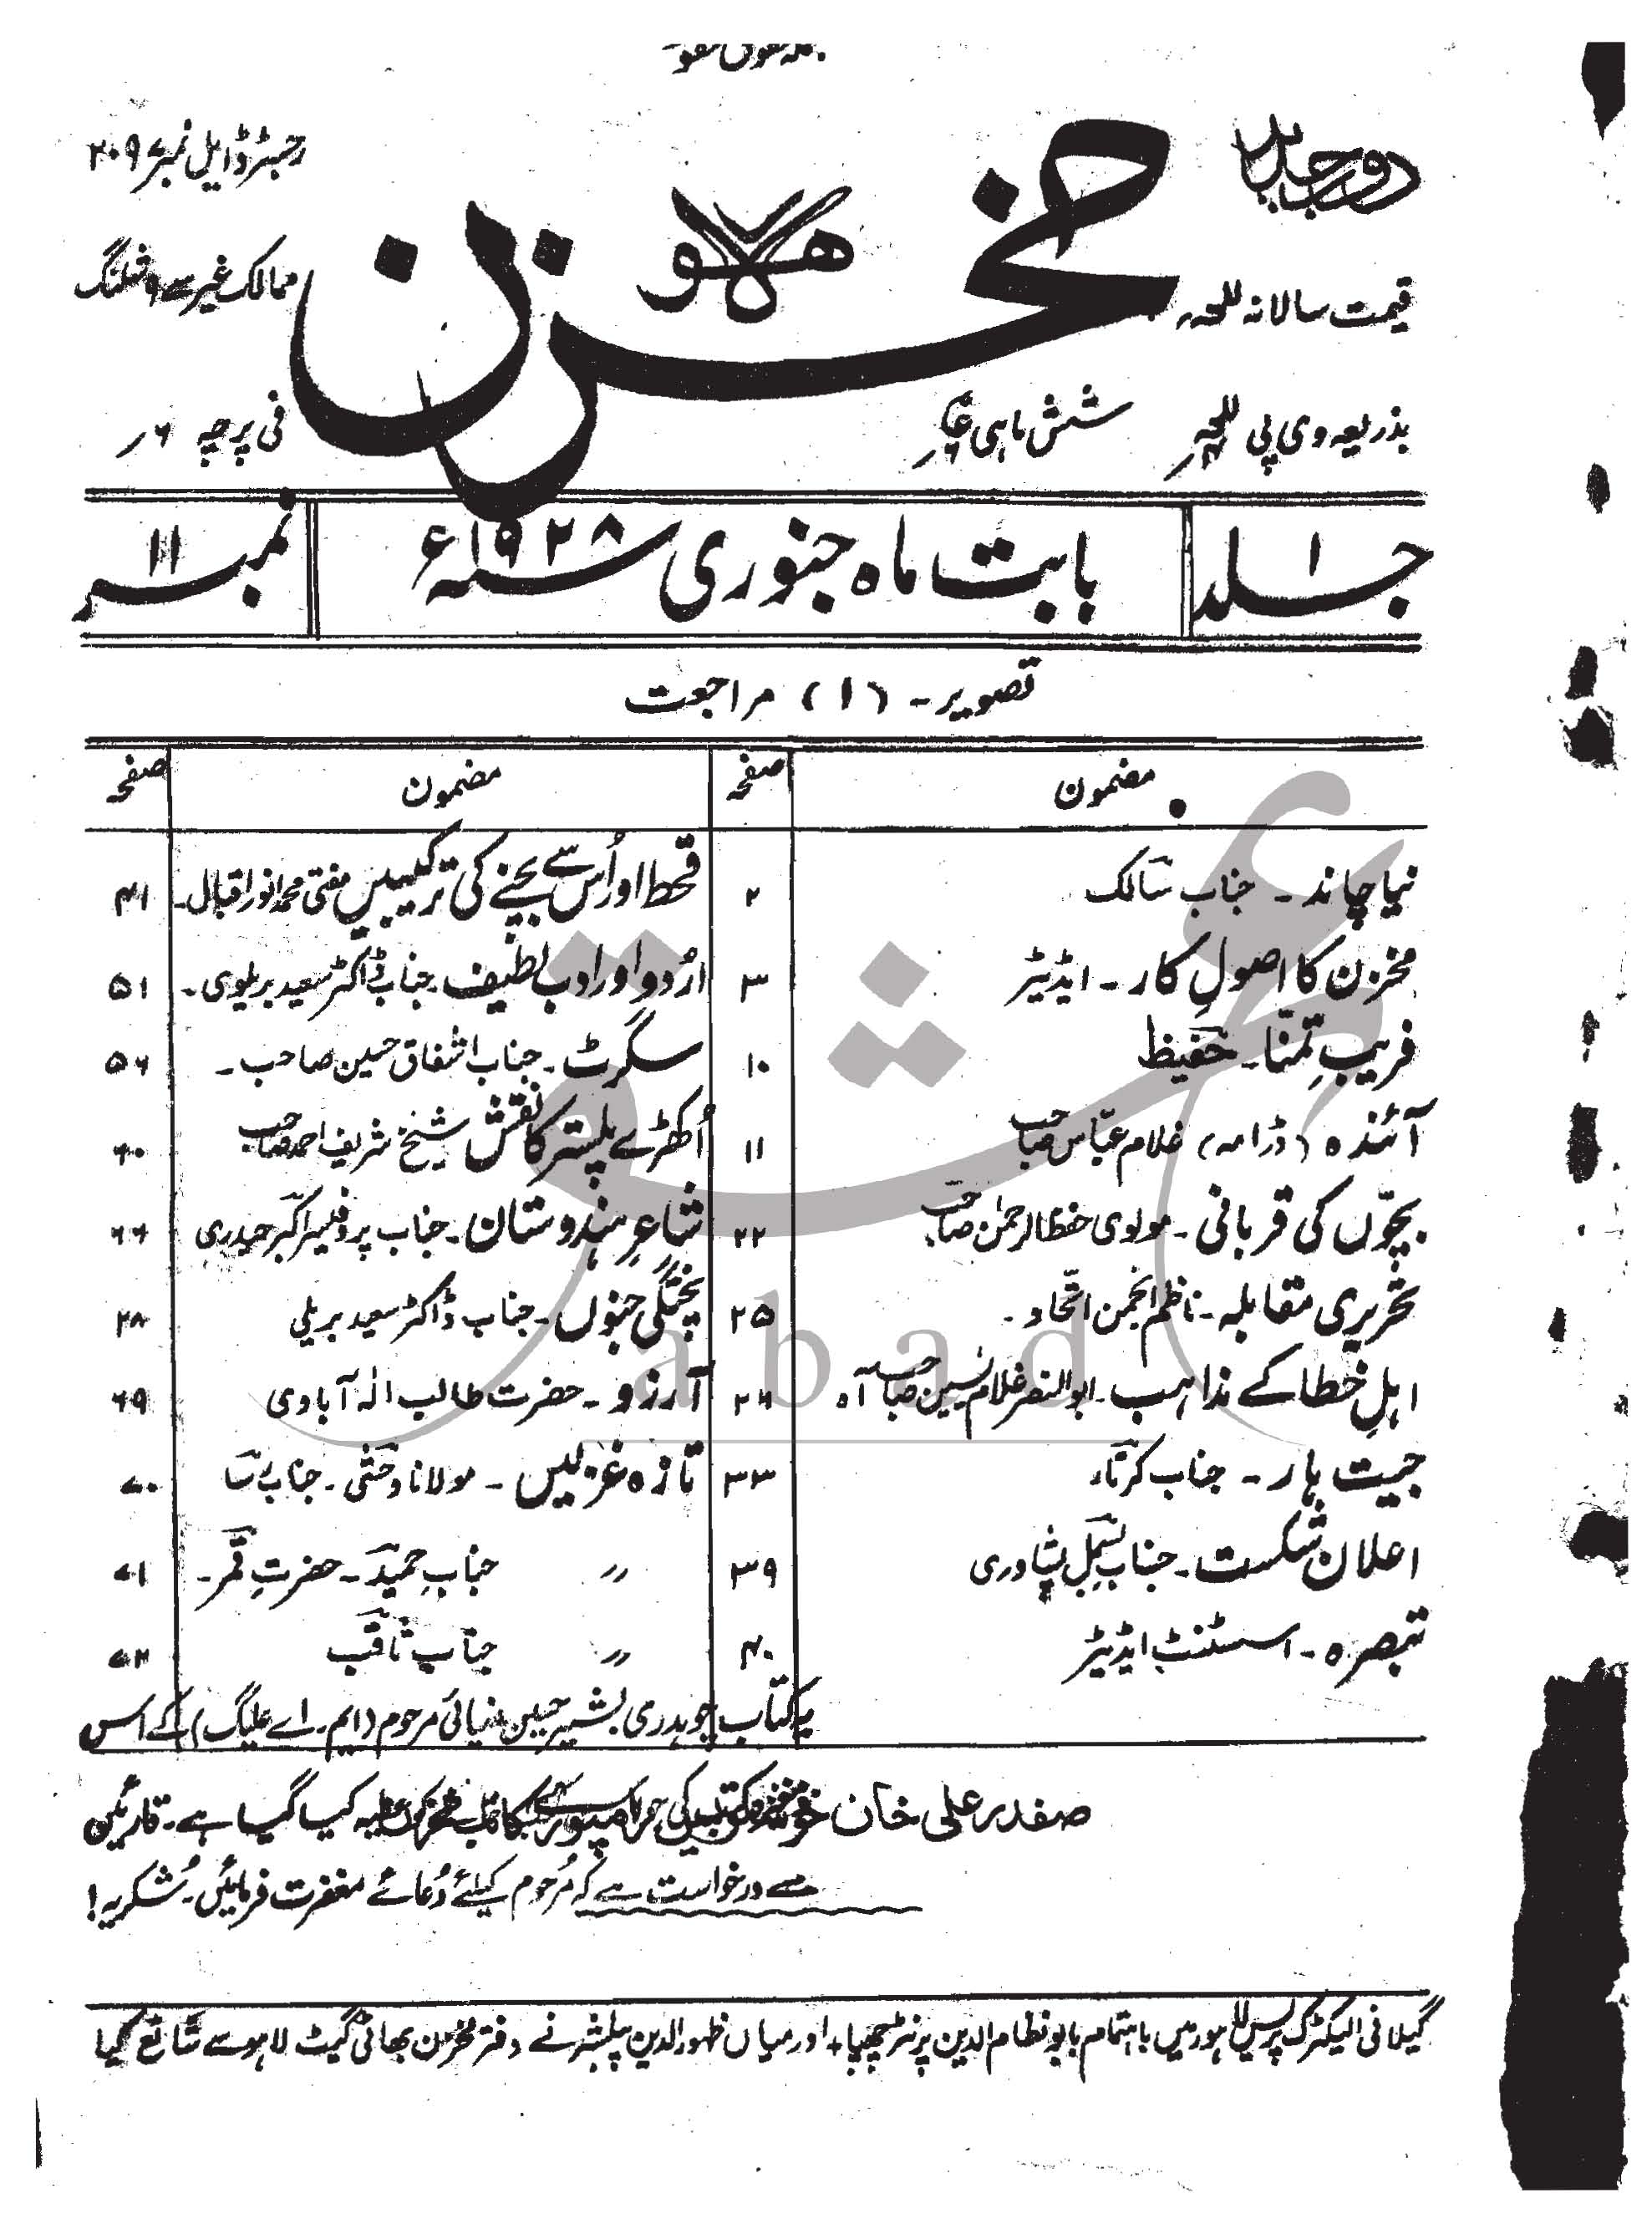 جملہ حقوق محفوظ
دورِ جدید
مخزن
ھو
رجسٹرڈ ایل نمبر ۲۰۹
قیمت سالانہ للعہ
ممالک غیر سے ۹ شلنگ
بذریعہ وی پی للعہ
شش ماہی
فی پرچہ ۶؍
جلد ۱
بابت ماہ جنوری سنہ ۱۹۲۸ء
نمبر ۱۱
تصویر ۔ (۱) مراجعت
مضمون صفحہ
نیا چاند ۔ جناب سالک ۲
مخزن کا اصولِ کار ۔ ایڈیٹر ۳
فریبِ تمنّا ۔ حفیظ ۱۰
آئندہ (ڈرامہ) غلام عبّاس صاحب ۱۱
بچّوں کی قربانی ۔ مولوی حفظ الرحمٰن صاحب ۲۲
تحریری مقابلہ ۔ ناظم انجمن اتّحاد ۔ ۲۵
اہلِ خطا کے مذاہب ۔ ابوالنصر غلام یٰسین صاحب آہ ۲۶
جیت ہار ۔ جناب کرتار ۳۳
اعلان شکست ۔ جناب بسمل پشاوری ۳۹
تبصرہ ۔ اسسٹنٹ ایڈیٹر ۴۰
مضمون صفحہ
قحط اور اُس سے بچنے کی ترکیبیں مفتی محمد انور اقبال ۔ ۴۱
اردو اور ادب لطیف ۔ جناب ڈاکٹر سعید بریلوی ۔ ۵۱
سگرٹ ۔ جناب اشفاق حسین صاحب ۔ ۵۶
اُکھڑے پلستر کا نقش شیخ شریف احمد صاحب ۶۰
شاعرِ ہندوستان ۔ جناب پروفیسر اکبر حیدری ۶۶
پختگیِ جنوں ۔ جناب ڈاکٹر سعید بریلی ۶۸
آرزو ۔ حضرت طالب الہ آبادی ۶۹
تازہ غزلیں ۔ مولانا وحشی ۔ جناب ۷۰
〃 جنابِ حمید ۔ حضرتِ قمر ۔ ۷۱
〃 جناب ثاقب ۷۲
یہ کتاب چوہدری بشیر حسین ضیائی مرحوم (ایم۔ اے علیگ) کے اس
صفدر علی خان
کیا گیا ہے ۔ قارئین
سے درخواست ہے کہ مرحوم کیلئے دُعائے مغفرت فرمائیں ۔ شکریہ !
گیلانی الیکٹرک پریس لاہور میں باہتمام بابو نظام الدین پرنٹر چھپا، اور میاں ظہور الدین پبلشر نے دفتر مخزن بھاٹی گیٹ لاہور سے شائع کیا
abad